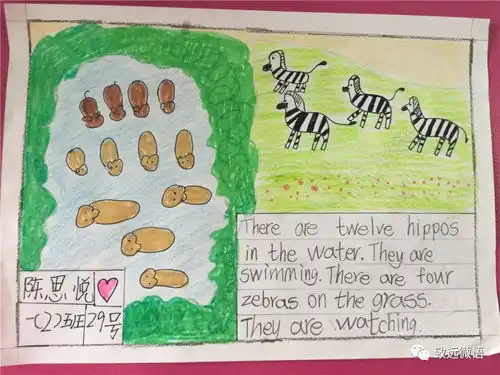 There are twelve hippos
in the water. They are
swimming. There are four
zebras on the grass.
They are watching.
陈思悦
一(2)班 29号
致远微语